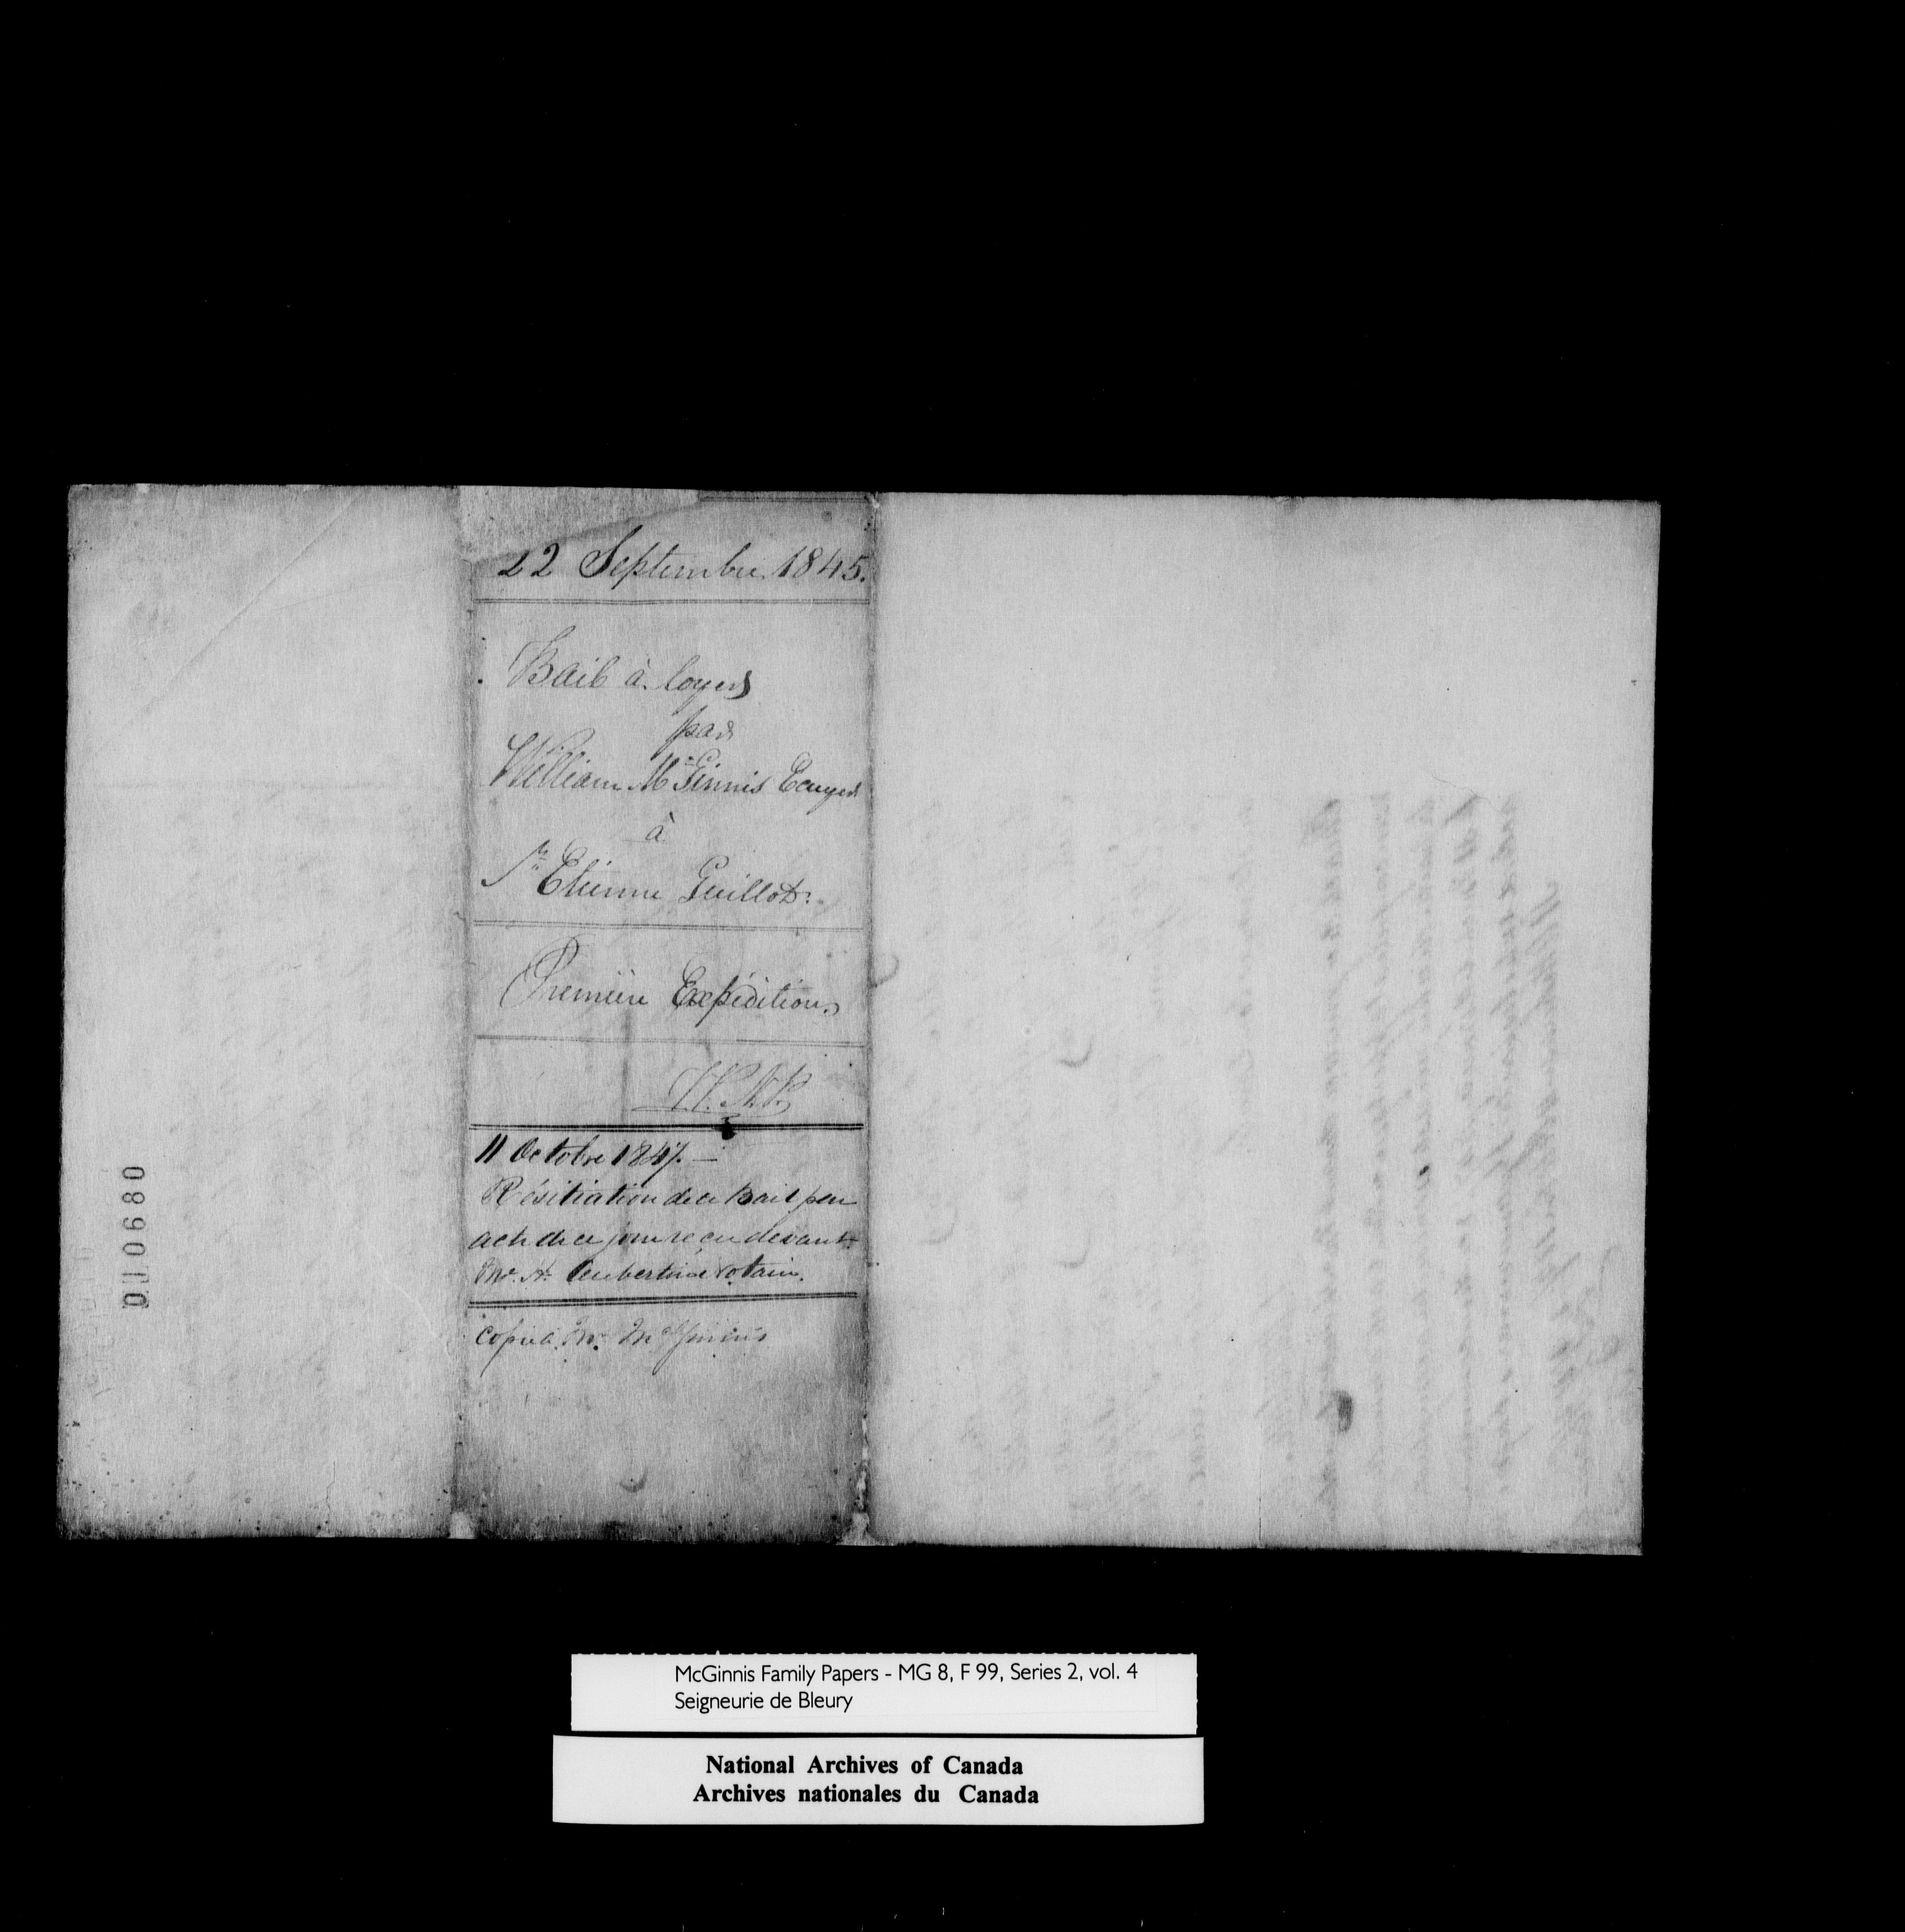 22 Septembre 1845.
Bail à loyer
par
William McGinnis Ecuyer
à
Sr. Etienne Guillot.
Première Expédition
11 Octobre 1847. —
Résiliation de ce Bail par
acte de ce jour reçu devant
Mre. A. Aubertin Notaire.
copie à Mr. McGinnis
010680
McGinnis Family Papers - MG 8, F 99, Series 2, vol. 4
Seigneurie de Bleury
National Archives of Canada
Archives nationales du Canada